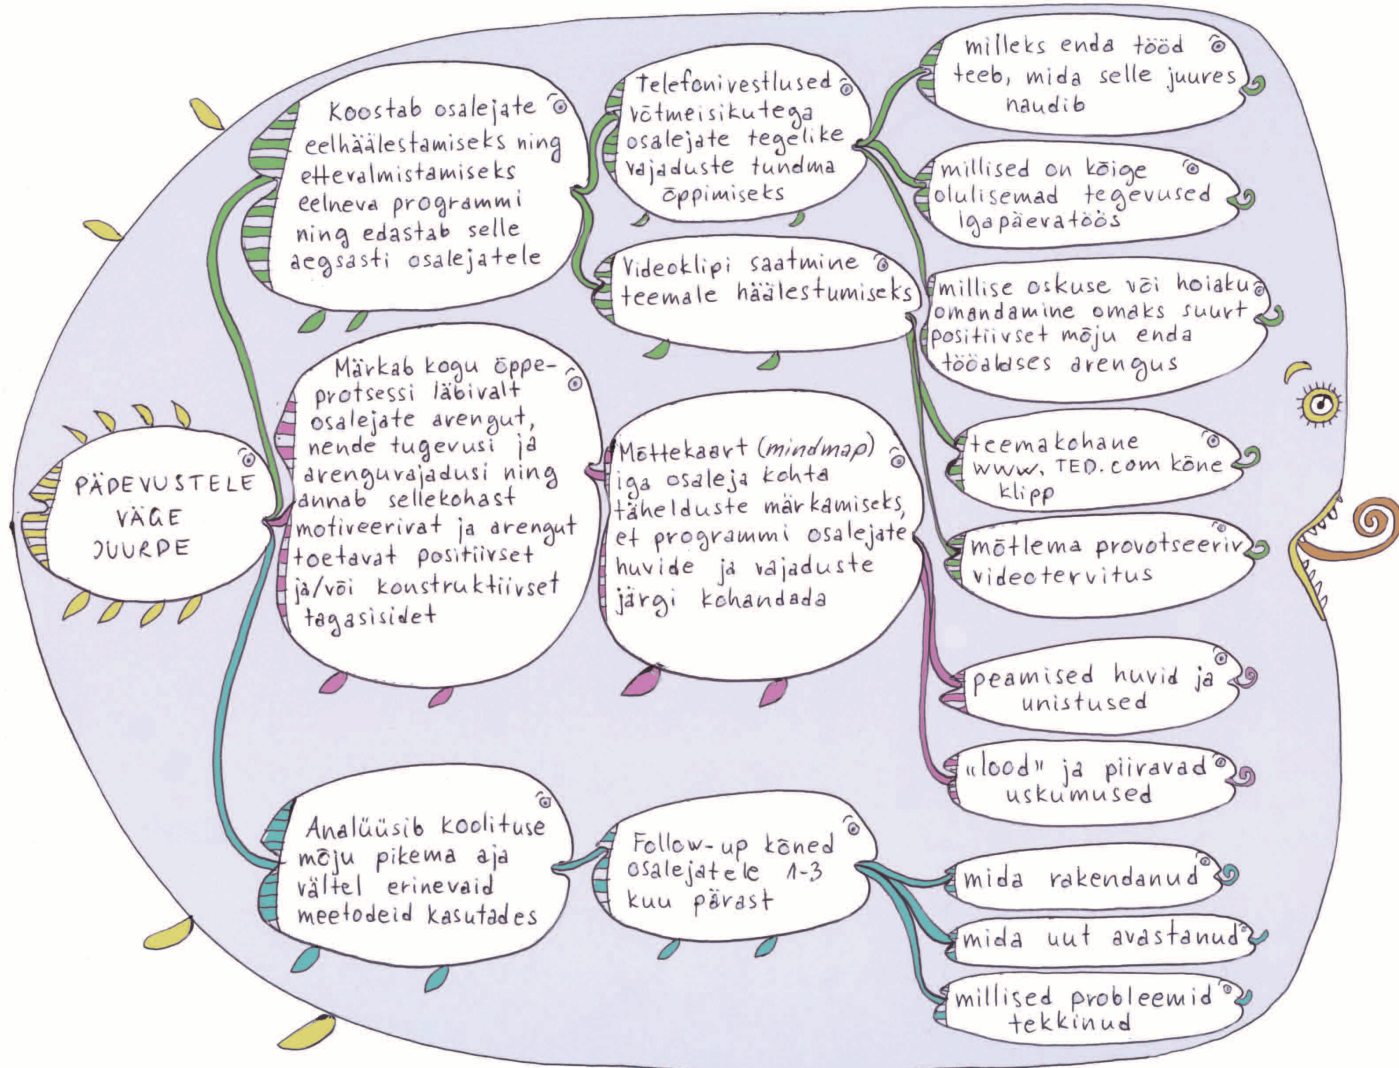 PÄDEVUSTELE
VÄGE
JUURDE
Koostab osalejate
eelhäälestamiseks ning
ettevalmistamiseks
eelneva programmi
ning edastab selle
aegsasti osalejatele
Telefonivestlused
võtmeisikutega
osalejate tegelike
vajaduste tundma
õppimiseks
milleks enda tööd
teeb, mida selle juures
naudib
millised on kõige
olulisemad tegevused
igapäevatöös
millise oskuse või hoiaku
omandamine omaks suurt
positiivset mõju enda
tööalases arengus
Videoklipi saatmine
teemale häälestumiseks
teemakohane
www.TED.com kõne
klipp
mõtlema provotseeriv
videotervitus
Märkab kogu õppe-
protsessi läbivalt
osalejate arengut,
nende tugevusi ja
arenguvajadusi ning
annab sellekohast
motiveerivat ja arengut
toetavat positiivset
ja/või konstruktiivset
tagasisidet
Mõttekaart (mindmap)
iga osaleja kohta
tähelduste märkamiseks,
et programmi osalejate
huvide ja vajaduste
järgi kohandada
peamised huvid ja
unistused
"lood" ja piiravad
uskumused
Analüüsib koolituse
mõju pikema aja
vältel erinevaid
meetodeid kasutades
Follow-up kõned
osalejatele 1-3
kuu pärast
mida rakendanud
mida uut avastanud
millised probleemid
tekkinud